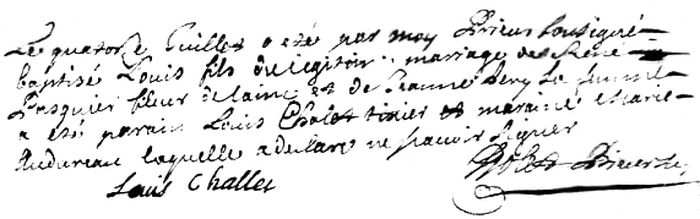 Le quatorze Juillet a esté par moy Prieur soussigné
baptisé Louis fils du legitim mariage de René
Pasquier fileur de laine et de Jeanne Sery sa femme
a été parain Louis Chalet tixier et maraine Marie
Audureau laquelle a déclaré ne savoir signer
Louis Challet